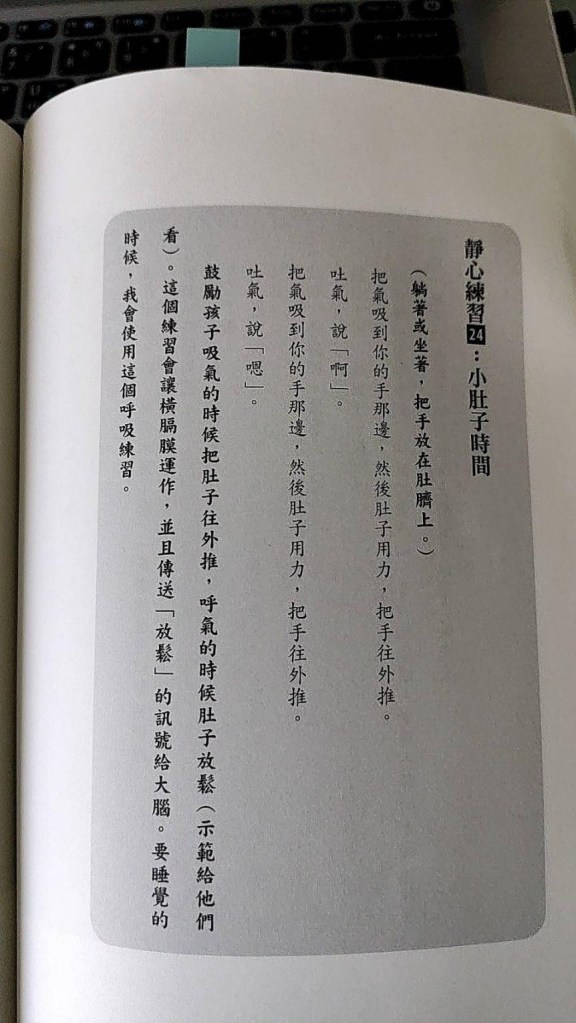 靜心練習24：小肚子時間
（躺著或坐著，把手放在肚臍上。）
把氣吸到你的手那邊，然後肚子用力，把手往外推。
吐氣，說「啊」。
把氣吸到你的手那邊，然後肚子用力，把手往外推。
吐氣，說「嗯」。
鼓勵孩子吸氣的時候把肚子往外推，呼氣的時候肚子放鬆（示範給他們
看）。這個練習會讓橫膈膜運作，並且傳送「放鬆」的訊號給大腦。要睡覺的
時候，我會使用這個呼吸練習。